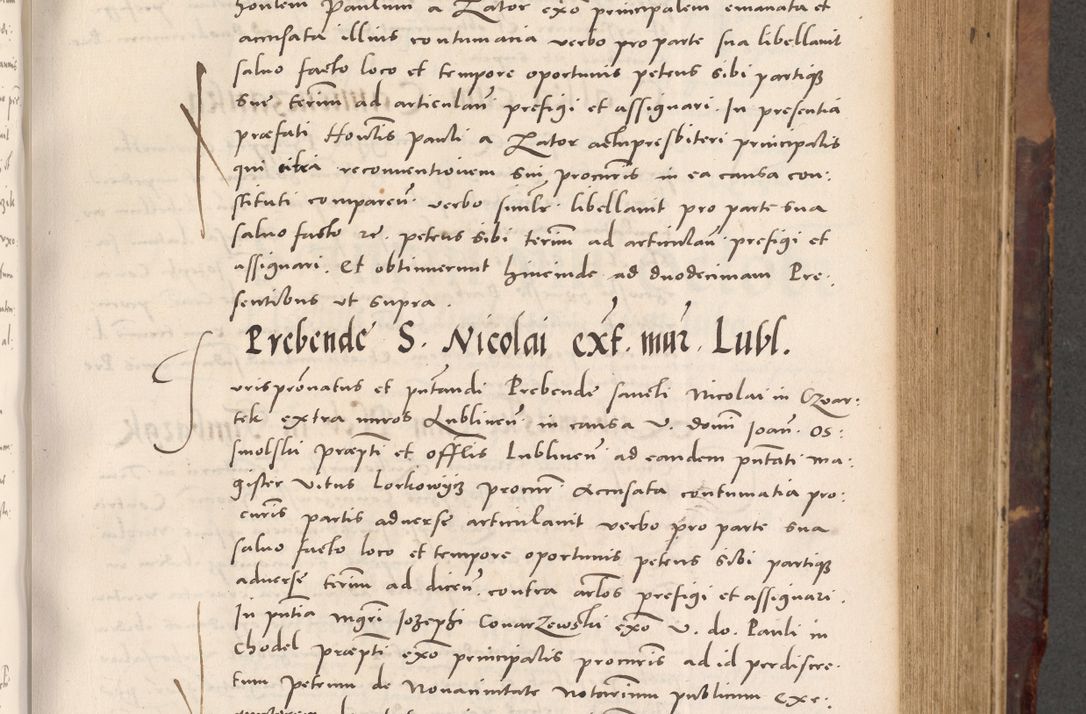 hontem Paulum a Zator ex͠o principalem emanata et
accusata illius contumacia verbo pro parte sua libellauit
saluo facto loco et tempore oportunis petens sibi partiq3
sue termi͠ ad articulan͠ prefigi et assignari. In presentia
præfati Hontis Pauli a Zator archipresbiteri principalis
qui citra reconuentionem sui procuris in ea causa con:
stituti comparen͠ verbo similr͠ libellauit pro parte sua
saluo facto rē. petens sibi termi͠ ad articulan͠ prefigi et
assignari. Et obtinuerunt hincinde ad duodecimam Pre:
sentibus ut supra.
Prebende S. Nicolai ext͠. mur͠. Lubl.
Jurispr͠onatus et pn͠tandi Prebende sancti Nicolai in Czwar:
tek extra muros Lublinen͠ in causa v. domi͠ Joan͠. Os:
molski præpti͠ et offlis͠ Lublinen͠ ad eandem pn͠tati ma:
gister Vitus procur͠ Accusata contumatia pro:
curis partis aduerse articulauit verbo pro parte sua
saluo facto loco et tempore oportunis petens sibi partiq3
aduerse termi͠ ad dicen͠. contra artl͠os prefigi et assignari.
In pn͠tia mgr͠i Iozephi ConarZewski ex͠o v. do. Pauli in
Chodel præpti͠ ex͠o principalis procuris ad id perdiscre:
tum petrum de Nouaciuitate Notarium publicum exe: